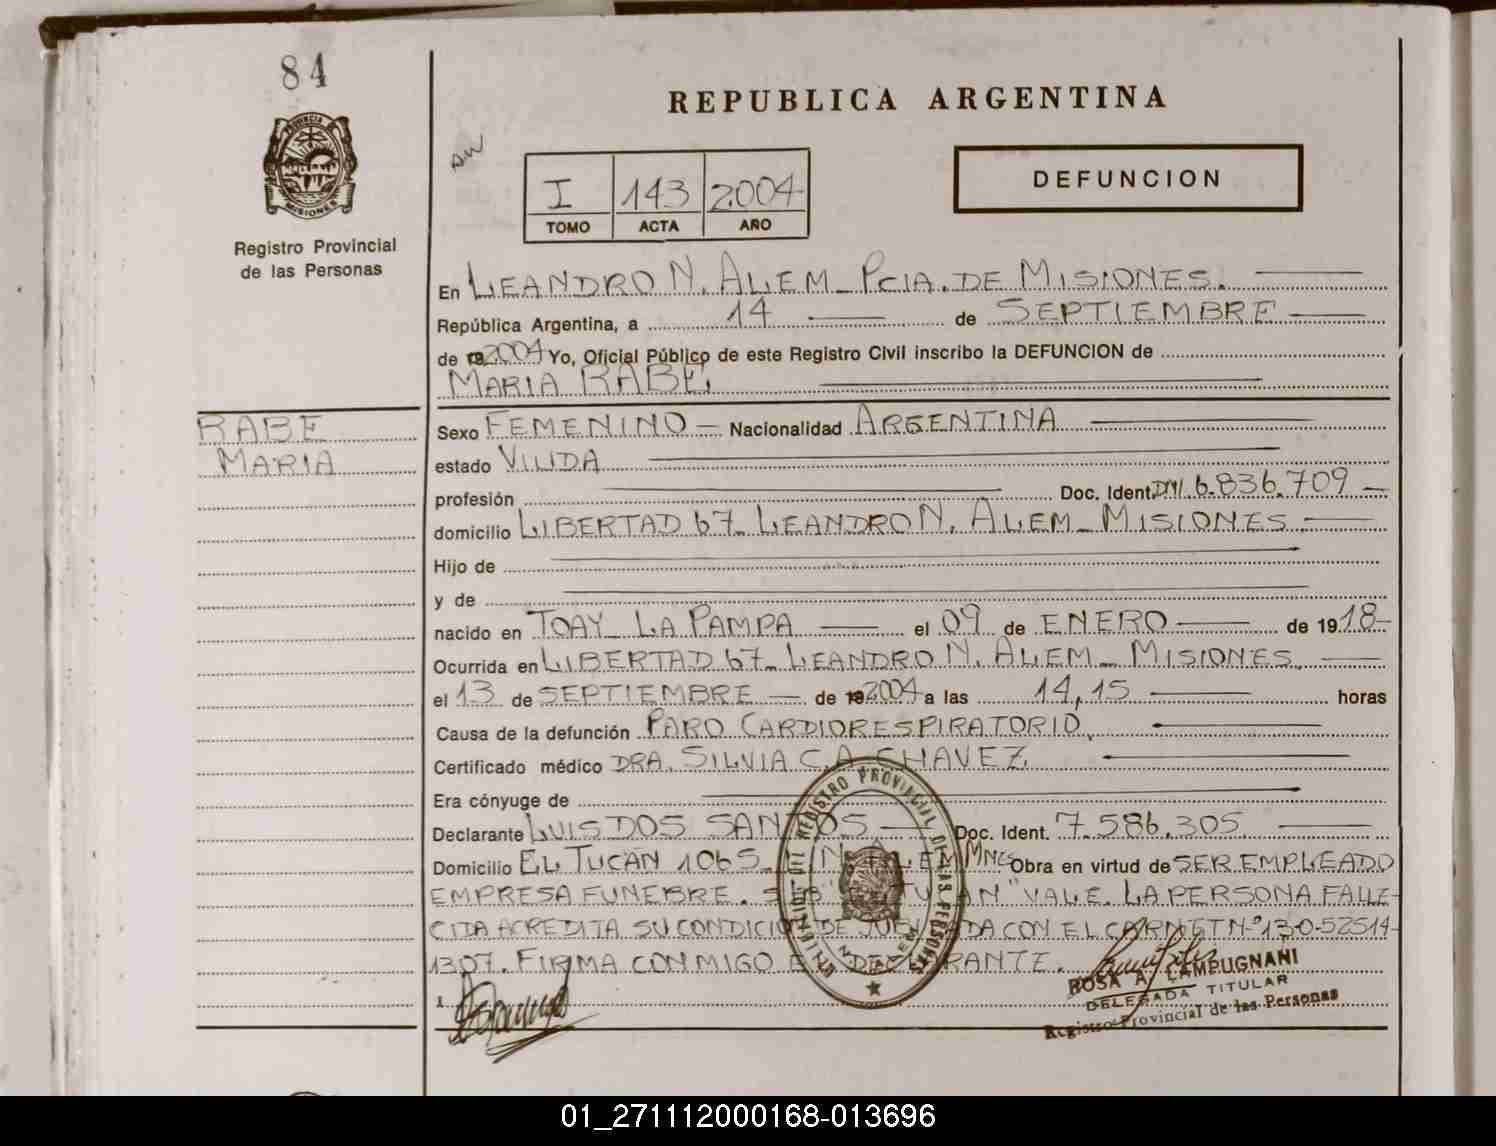 84
REPUBLICA ARGENTINA
PROVINCIA DE
MISIONES
Registro Provincial
de las Personas
I 143 2004
TOMO ACTA AÑO
DEFUNCION
En LEANDRO N. ALEM_ PCIA. DE MISIONES.
República Argentina, a 14 de SEPTIEMBRE
de 2004 Yo, Oficial Público de este Registro Civil inscribo la DEFUNCION de
MARIA RABE.
RABE
MARIA
Sexo FEMENINO - Nacionalidad ARGENTINA
estado VIUDA
profesión Doc. Ident. DNI. 6.836.709 -
domicilio LIBERTAD 67_ LEANDRO N. ALEM_ MISIONES
Hijo de
y de
nacido en TOAY_ LA PAMPA el 09 de ENERO de 1918-
Ocurrida en LIBERTAD 67_ LEANDRO N. ALEM_ MISIONES
el 13 de SEPTIEMBRE de 2004 a las 14,15 horas
Causa de la defunción PARO CARDIORESPIRATORIO.
Certificado médico DRA. SILVIA C.A. CHAVEZ
Era cónyuge de
Declarante LUIS DOS SANTOS Doc. Ident. 7.586.305
Domicilio EL TUCÁN 1065_ N. ALEM Mnes Obra en virtud de SER EMPLEADO
EMPRESA FUNEBRE. "VALE. LA PERSONA FALLE-
CIDA ACREDITA SU CONDICION DE DA CON EL CARNET Nº 13-0-52514-
1307. FIRMA CONMIGO EL DECLARANTE.
REGISTRO PROVINCIAL DE LAS PERSONAS
ROSA A. LAMPUGNANI
DELEGADA TITULAR
Registro Provincial de las Personas
01_271112000168-013696